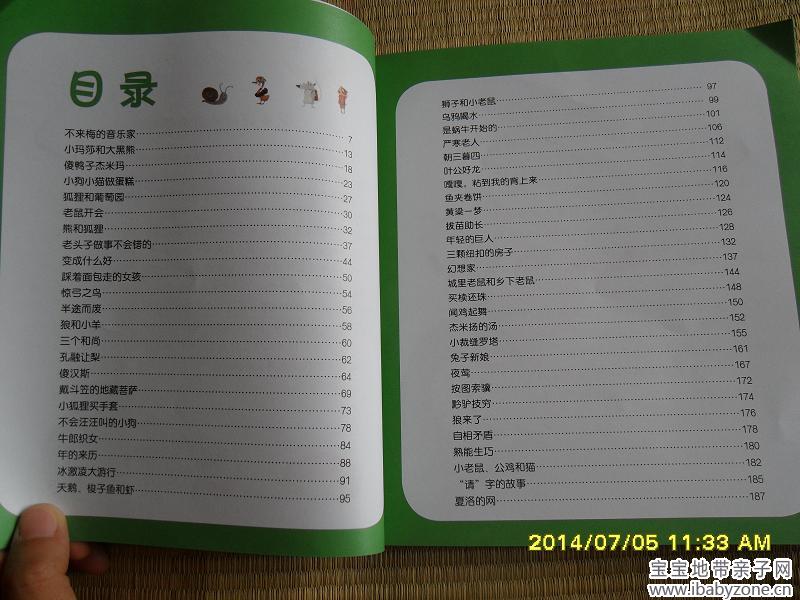 目录
不来梅的音乐家……7
小玛莎和大黑熊……13
傻鸭子杰米玛……18
小狗小猫做蛋糕……23
狐狸和葡萄园……27
老鼠开会……30
熊和狐狸……32
老头子做事不会错的……37
变成什么好……44
踩着面包走的女孩……50
惊弓之鸟……54
半途而废……56
狼和小羊……58
三个和尚……60
孔融让梨……62
傻汉斯……64
戴斗笠的地藏菩萨……69
小狐狸买手套……73
不会汪汪叫的小狗……78
牛郎织女……84
年的来历……88
冰激凌大游行……91
天鹅、梭子鱼和虾……95
狮子和小老鼠……97
乌鸦喝水……99
是蜗牛开始的……101
严寒老人……106
朝三暮四……112
叶公好龙……114
嘎嘎，粘到我的背上来……116
鱼夹卷饼……120
黄粱一梦……124
拔苗助长……126
年轻的巨人……128
三颗纽扣的房子……132
幻想家……137
城里老鼠和乡下老鼠……144
买椟还珠……148
闻鸡起舞……150
杰米扬的汤……152
小裁缝罗塔……155
兔子新娘……161
夜莺……167
按图索骥……172
黔驴技穷……174
狼来了……176
自相矛盾……178
熟能生巧……180
小老鼠、公鸡和猫……182
“请”字的故事……185
夏洛的网……187
2014/07/05 11:33 AM
宝宝地带亲子网
www.ibabyzone.cn